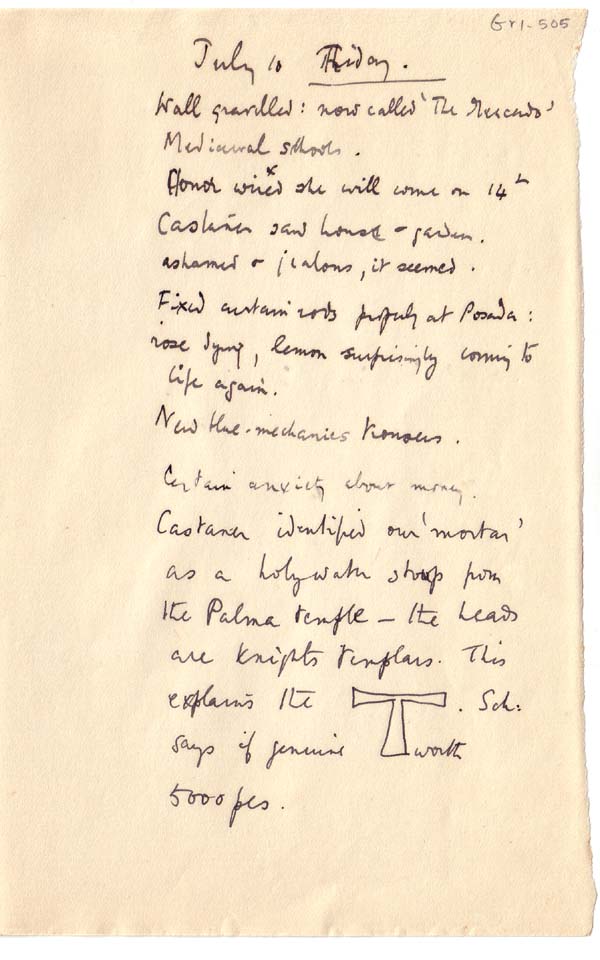 Gr1-505
July 10 Friday.
Wall gravelled: now called 'The Mercado'
Mediaeval schools.
Honor wired she will come on 14th
Castañer saw house & garden.
ashamed & jealous, it seemed.
Fixed curtain rods properly at Posada:
rose dying, lemon surprisingly coming to
life again.
New blue-mechanics trousers.
Certain anxiety about money.
Castaner identified our 'mortar'
as a holy water stoop from
the Palma temple – the heads
are Knights templars. This
explains the T. Sch:
says if genuine worth
5000 pes.